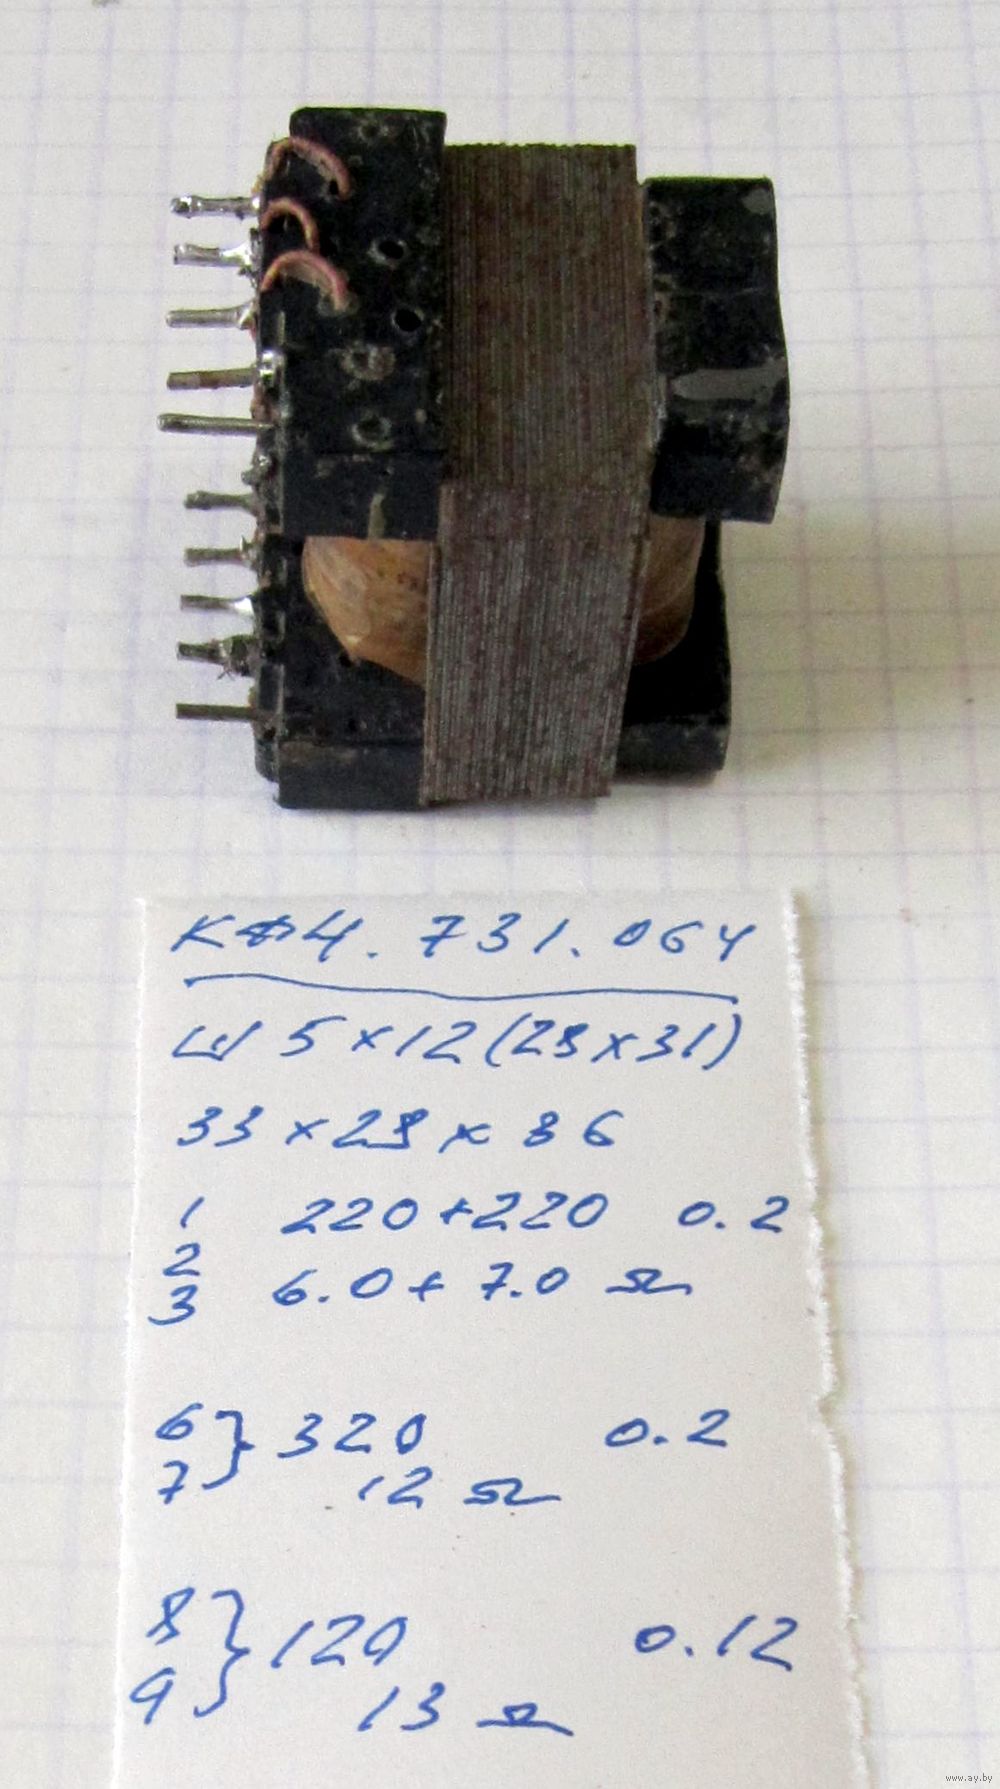 КФ4.731.064
Ш5×12(28×31)
33×28×36
1 220+220 0.2
2
3 6.0+7.0 Ω
6 } 320 0.2
7 12 Ω
8 } 120 0.12
9 13 Ω
www.ay.by